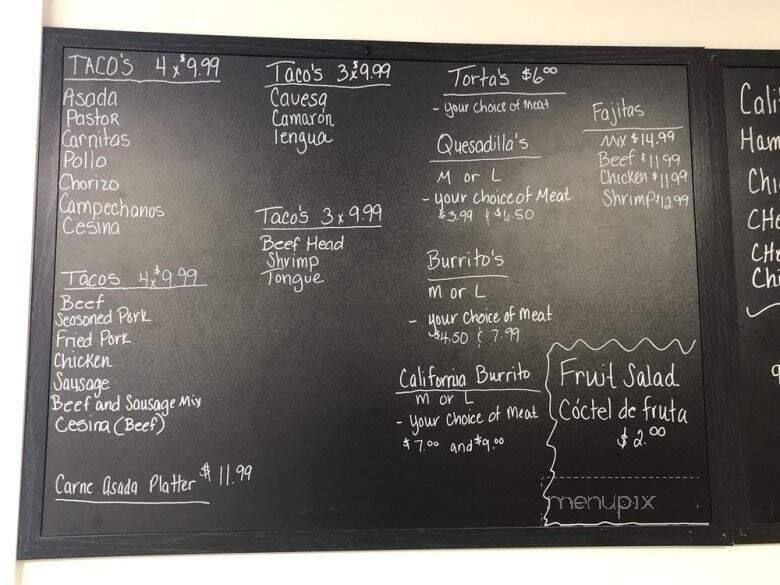 TACO'S 4x$9.99
Asada
Pastor
Carnitas
Pollo
Chorizo
Campechanos
Cesina
Tacos 4x$9.99
Beef
Seasoned Pork
Fried Pork
Chicken
Sausage
Beef and Sausage Mix
Cesina (Beef)
Carne Asada Platter $11.99
Taco's 3x$9.99
Cavesa
Camarón
lengua
Taco's 3x9.99
Beef Head
Shrimp
Tongue
Torta's $6.00
- your choice of meat
Quesadilla's
M or L
- your choice of Meat
$3.99 & $6.50
Burrito's
M or L
- your choice of meat
$4.50 & 7.99
California Burrito
M or L
- Your Choice of Meat
$7.00 and $9.00
Fajitas
Mix $14.99
Beef $11.99
Chicken $11.99
Shrimp $12.99
Fruit Salad
Cóctel de fruta
$2.00
menupix
Cali
Ham
Chi
CHe
CHe
Chi